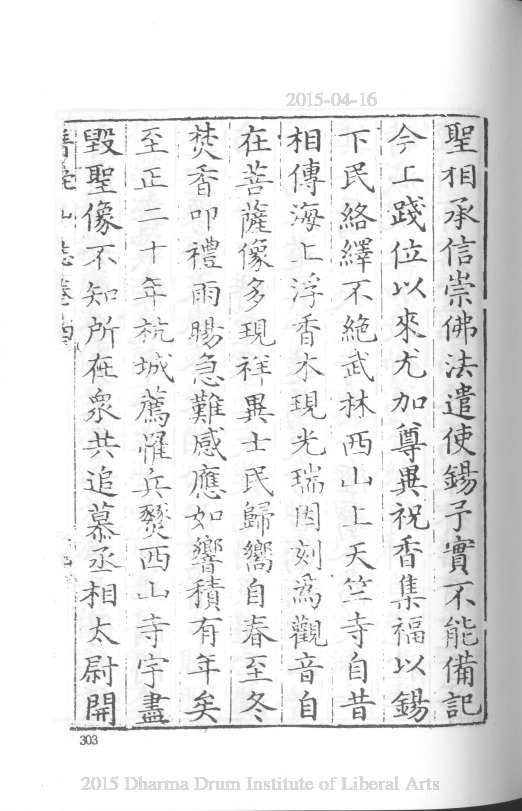 2015-04-16
聖相承信崇佛法遣使錫予實不能備記
今上踐位以來尤加尊異祝香集福以錫
下民絡繹不絕武林西山上天竺寺自昔
相傳海上浮香木現光瑞因刻為觀音自
在菩薩像多現祥異士民歸嚮自春至冬
焚香叩禮雨暘急難感應如響積有年矣
至正二十年杭城薦罹兵燹西山寺宇盡
毀聖像不知所在眾共追慕丞相太尉開
普陀山志卷四
303
2015 Dharma Drum Institute of Liberal Arts